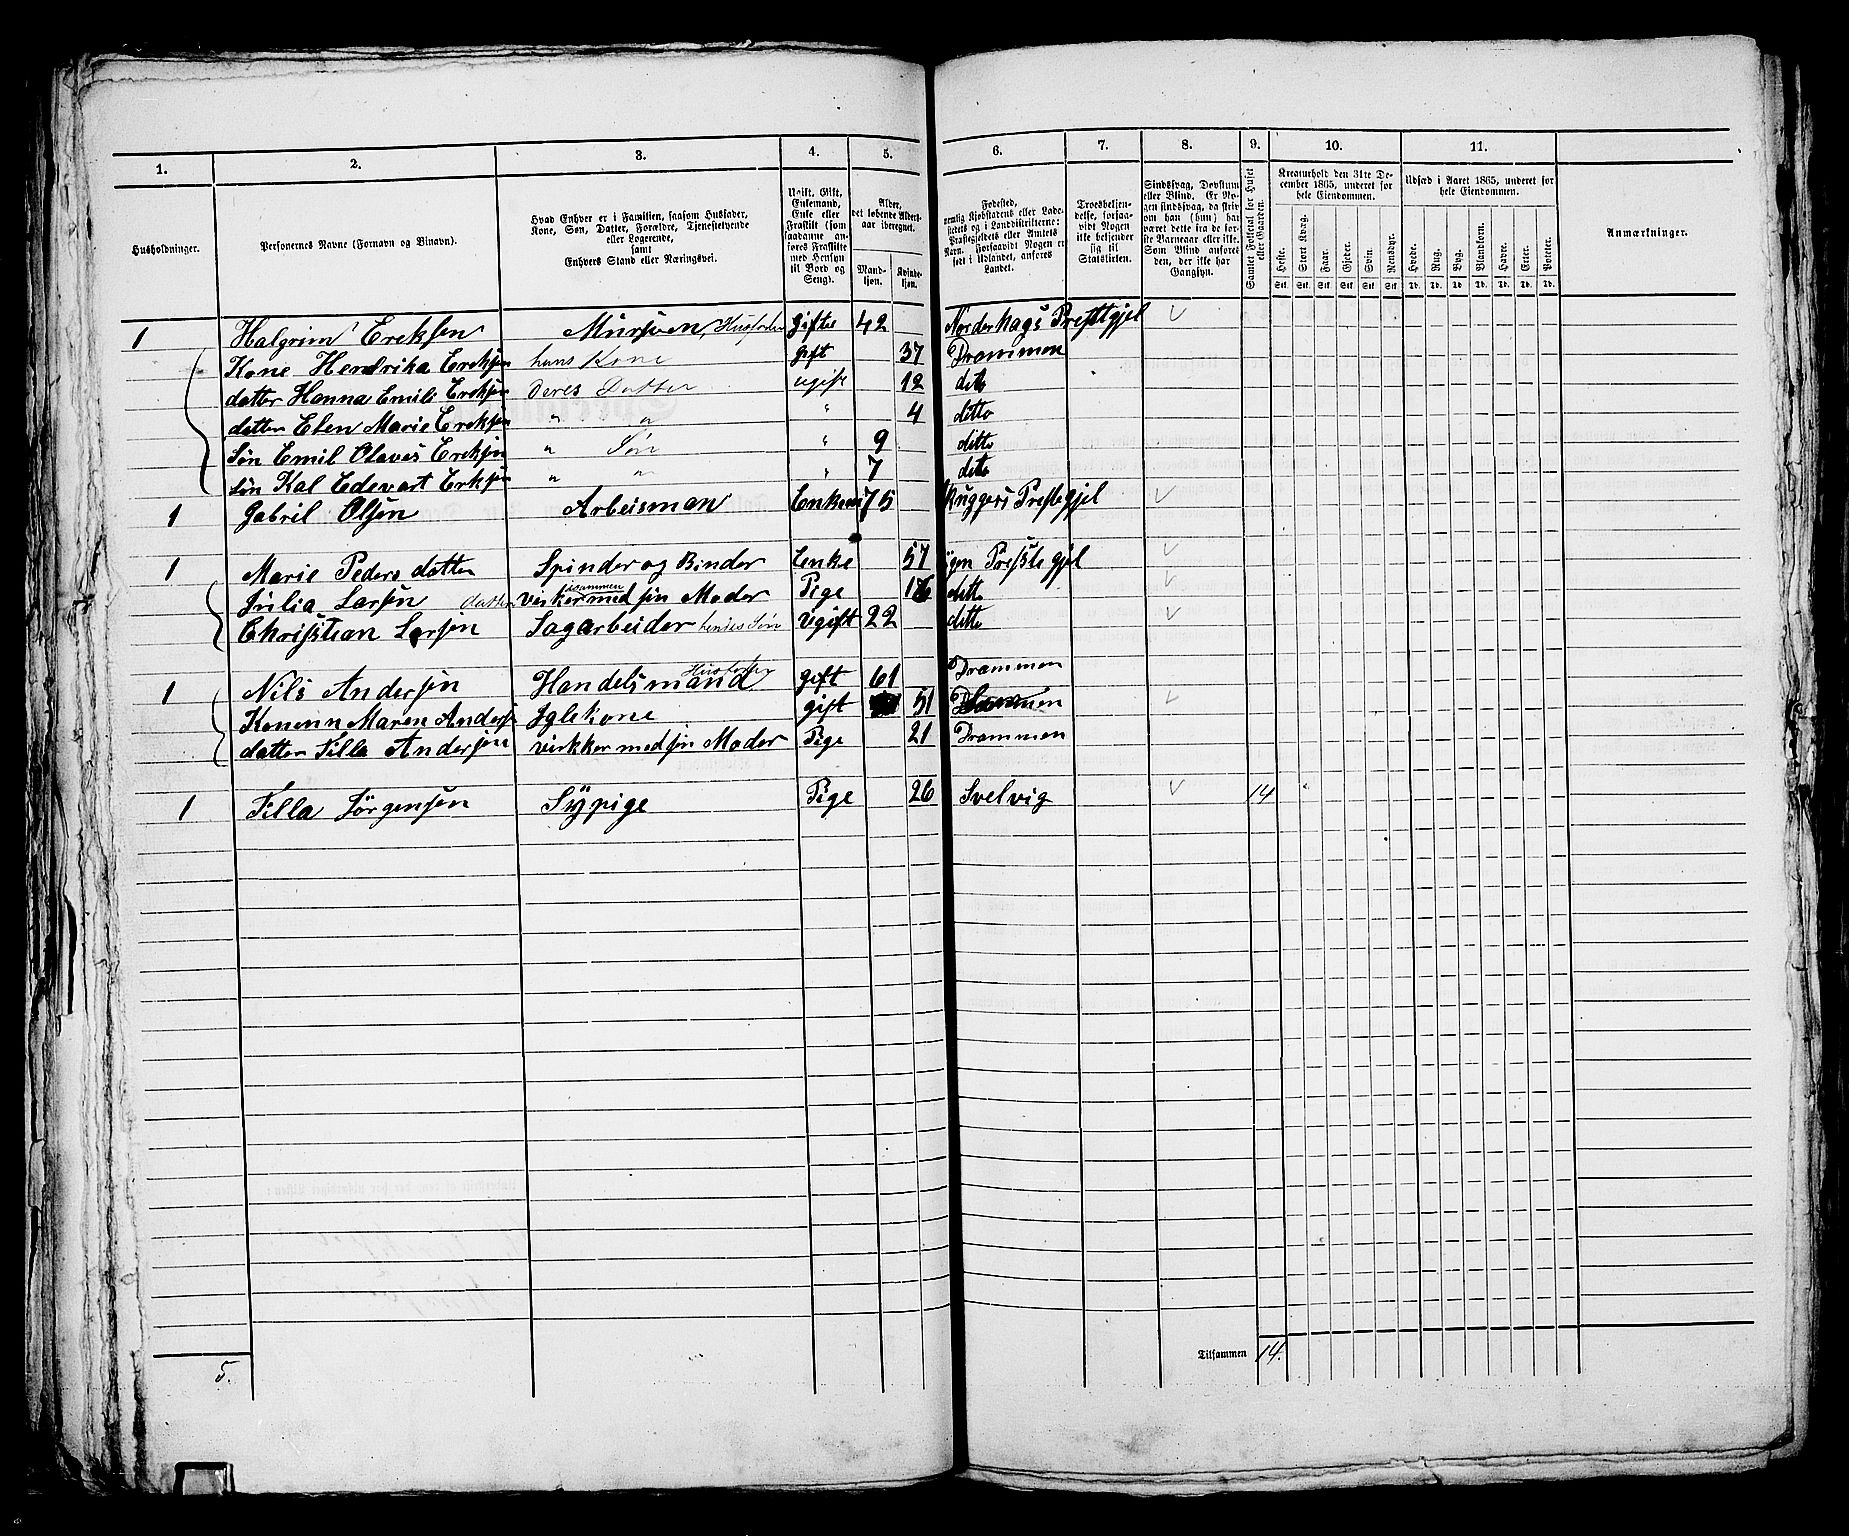 1. 2. 3. 4. 5. 6. 7. 8. 9. 10. 11.
Husholdninger.
Personernes Navne (Fornavn og Binavn).
Hvad Enhver er i Familien, saasom Husfader,
Kone, Søn, Datter, Forældre, Tjenestetyende
eller Logerende,
samt
Enhvers Stand eller Næringsvei.
Ugift, Gift,
Enkemand,
Enke eller
Fraskilt (som
saadanne an-
føres Fraskilte
med Hensyn
til Bord og
Seng).
Alder,
det løbende Alders-
aar iberegnet.
Mand-
kjøn.
Kvinde-
kjøn.
Fødested,
nemlig Kjøbstadens eller Lade-
stedets og i Landdistrikterne:
Præstegjeldets eller Amtets
Navn. Forsaavidt Nogen er
født i Udlandet, anføres
Landet.
Troesbekjen-
delse, forsaa-
vidt Nogen
ikke bekjender
sig til
Statskirken.
Sindssvag, Døvstum
eller Blind. Er No-
gen sindssvag, da skriv
om han (hun) har
været dette fra de før-
ste Barneaar eller ikke.
Som Blind anføres
den, der ikke har
Gangsyn.
Samlet Folketal for Huset
eller Gaarden.
Kreaturhold den 31te De-
cember 1865, underet for
hele Eiendommen.
Heste. Stort Kvæg. Faar. Gjeder. Svin. Rensdyr.
Stk. Stk. Stk. Stk. Stk. Stk.
Udsæd i Aaret 1865, underet for
hele Eiendommen.
Hvede. Rug. Byg. Blandkorn. Havre. Erter. Poteter.
Td. Td. Td. Td. Td. Td. Td.
Anmærkninger.
1 Halgrim Ereksen Mursven, Husfader Giftes 42 Norderhags Prestgjel
Kone Hendrika Ereksen hans Kone gift 37 Drammen
datter Hanna Emile Ereksen deres Datter ugift 12 dito
datter Elen Marie Ereksen " " " 4 ditto
Søn Emil Olaves Ereksen " Søn " 9 ditto
søn Kal Edevart Erksen " " " 7 dito
1 Gabril Olsen Arbeisman Enkem 75 Ruggers Prestegjel
1 Marie Peders datter Spinder og Binder Enke 57 Prestegjel
Julia Larsen datter virker isammen med sin Moder Pige 16 ditto
Christian Larsen Sagarbeider hendes Søn Ugift 22 ditto
1 Nils Andersen Handelsmand Husfader gift 61 Drammen
Konenn Maren Anders Iglekone gift 51 Drammen
datter Tilla Andersen virkker med sin Moder Pige 21 Drammen
1 Tilla Jørgensen Sypige Pige 26 Svelvig 14
5. Tilsammen 14.